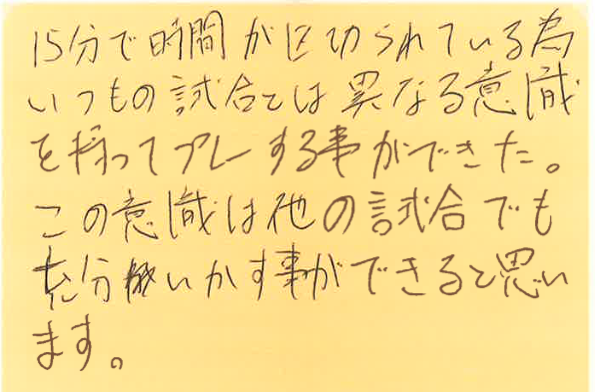 15分で時間が区切られている為
いつもの試合とは異なる意識
を持ってプレーする事ができた。
この意識は他の試合でも
充分いかす事ができると思い
ます。